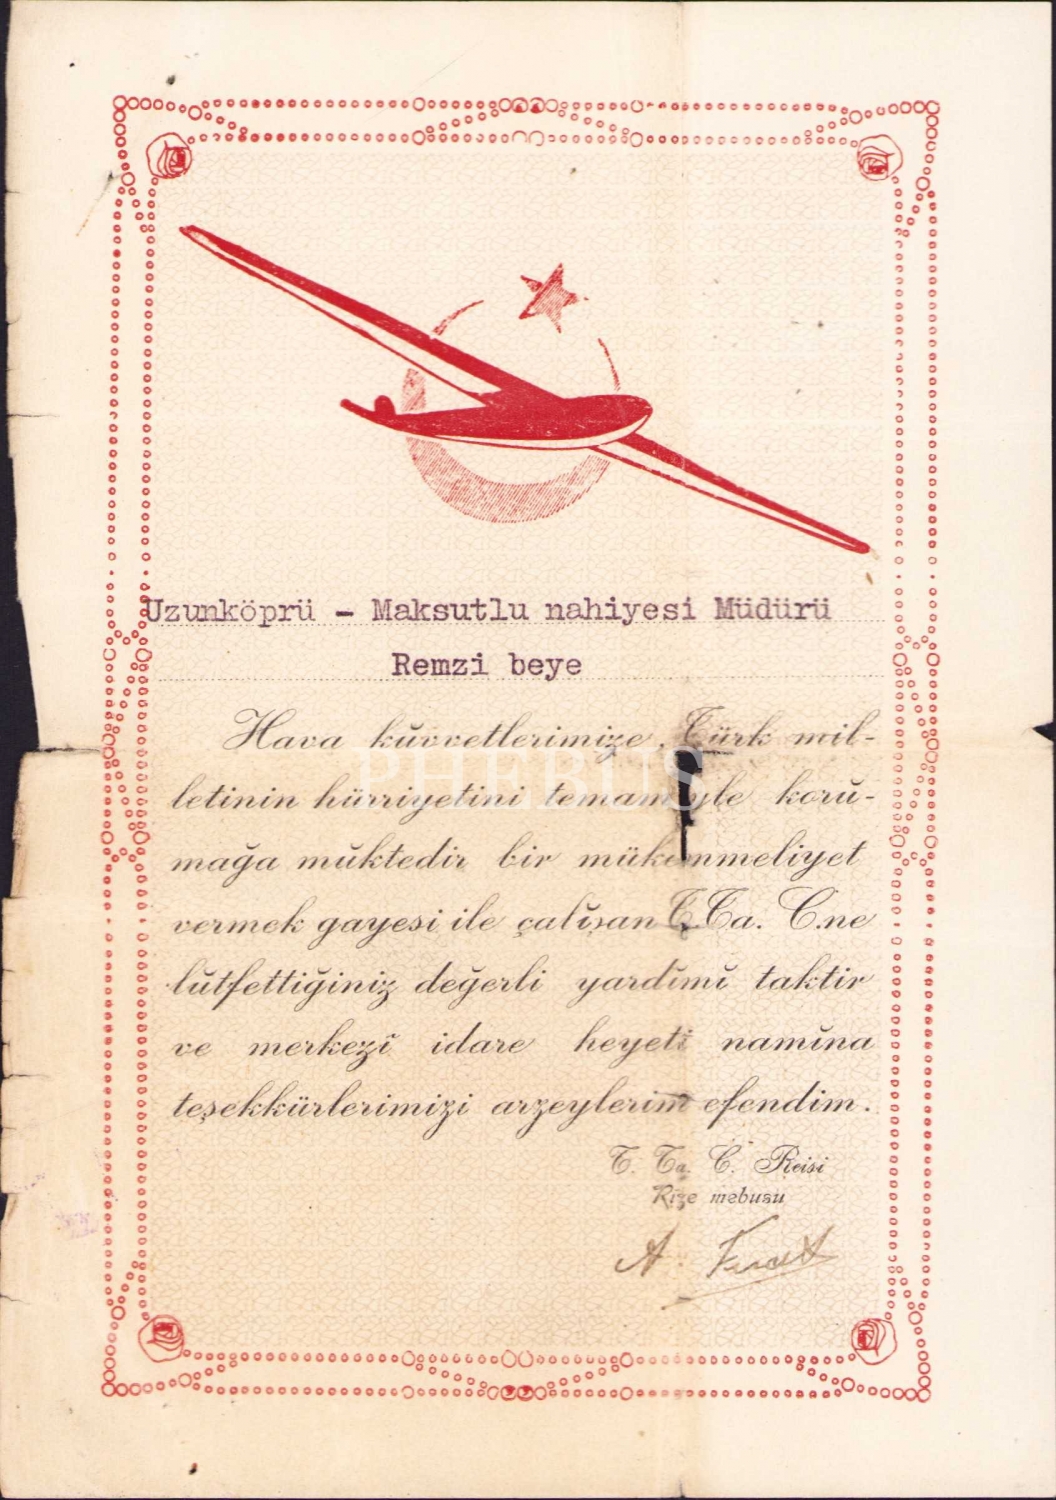 Uzunköprü - Maksutlu nahiyesi Müdürü
Remzi beye
Hava kŭvvetlerimize, Türk mil-
letinin hürriyetini temamiyle korŭ-
mağa mŭktedir bir mükemmeliyet
vermek gayesi ile çalĭşan T. Ta. C.ne
lŭtfettiğiniz değerli yardĭmĭ taktir
ve merkezĭ idare heyeti namĭna
teşekkürlerimizi arzeylerim efendim.
T. Ta. C. Reisi
Rize mebusu
A. Fuat
PHEBUS